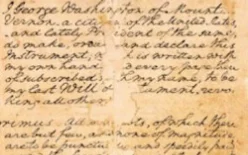 I George Washington of Mount
Vernon, a citizen of the United States,
and lately President of the same,
do make, or and declare this
Instrument, is written with
my own hand every page
subscribed my name, to be
my last Will & ament, revo
king all other
rimus. All my ts, of which there
are but few, and none of magnitude,
are to be punctu and speedily paid